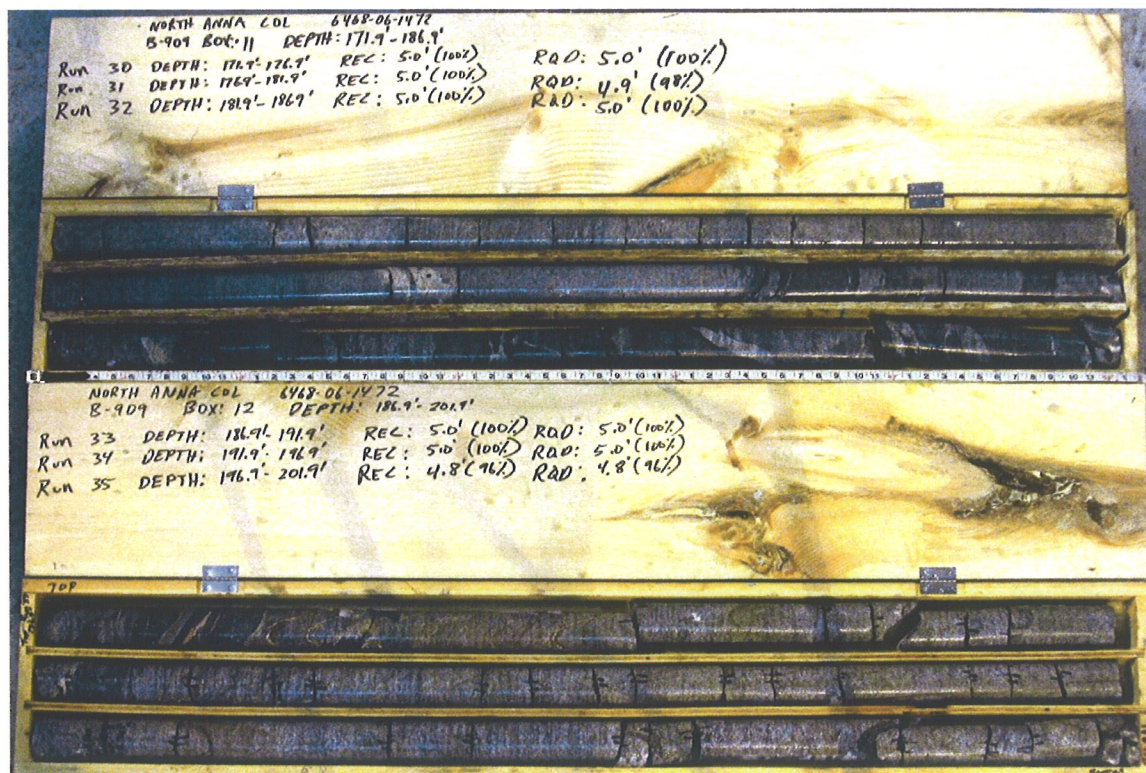 NORTH ANNA COL 6468-06-1472
B-909 BOX: 11 DEPTH: 171.9'-186.9'
Run 30 DEPTH: 171.9'-176.9' REC: 5.0' (100%) RQD: 5.0' (100%)
Run 31 DEPTH: 176.9'-181.9' REC: 5.0' (100%) RQD: 4.9' (98%)
Run 32 DEPTH: 181.9'-186.9' REC: 5.0' (100%) RQD: 5.0' (100%)
NORTH ANNA COL 6468-06-1472
B-909 BOX: 12 DEPTH: 186.9'-201.9'
Run 33 DEPTH: 186.9'-191.9' REC: 5.0' (100%) RQD: 5.0' (100%)
Run 34 DEPTH: 191.9'-196.9' REC: 5.0' (100%) RQD: 5.0' (100%)
Run 35 DEPTH: 196.9'-201.9' REC: 4.8' (96%) RQD: 4.8' (96%)
TOP